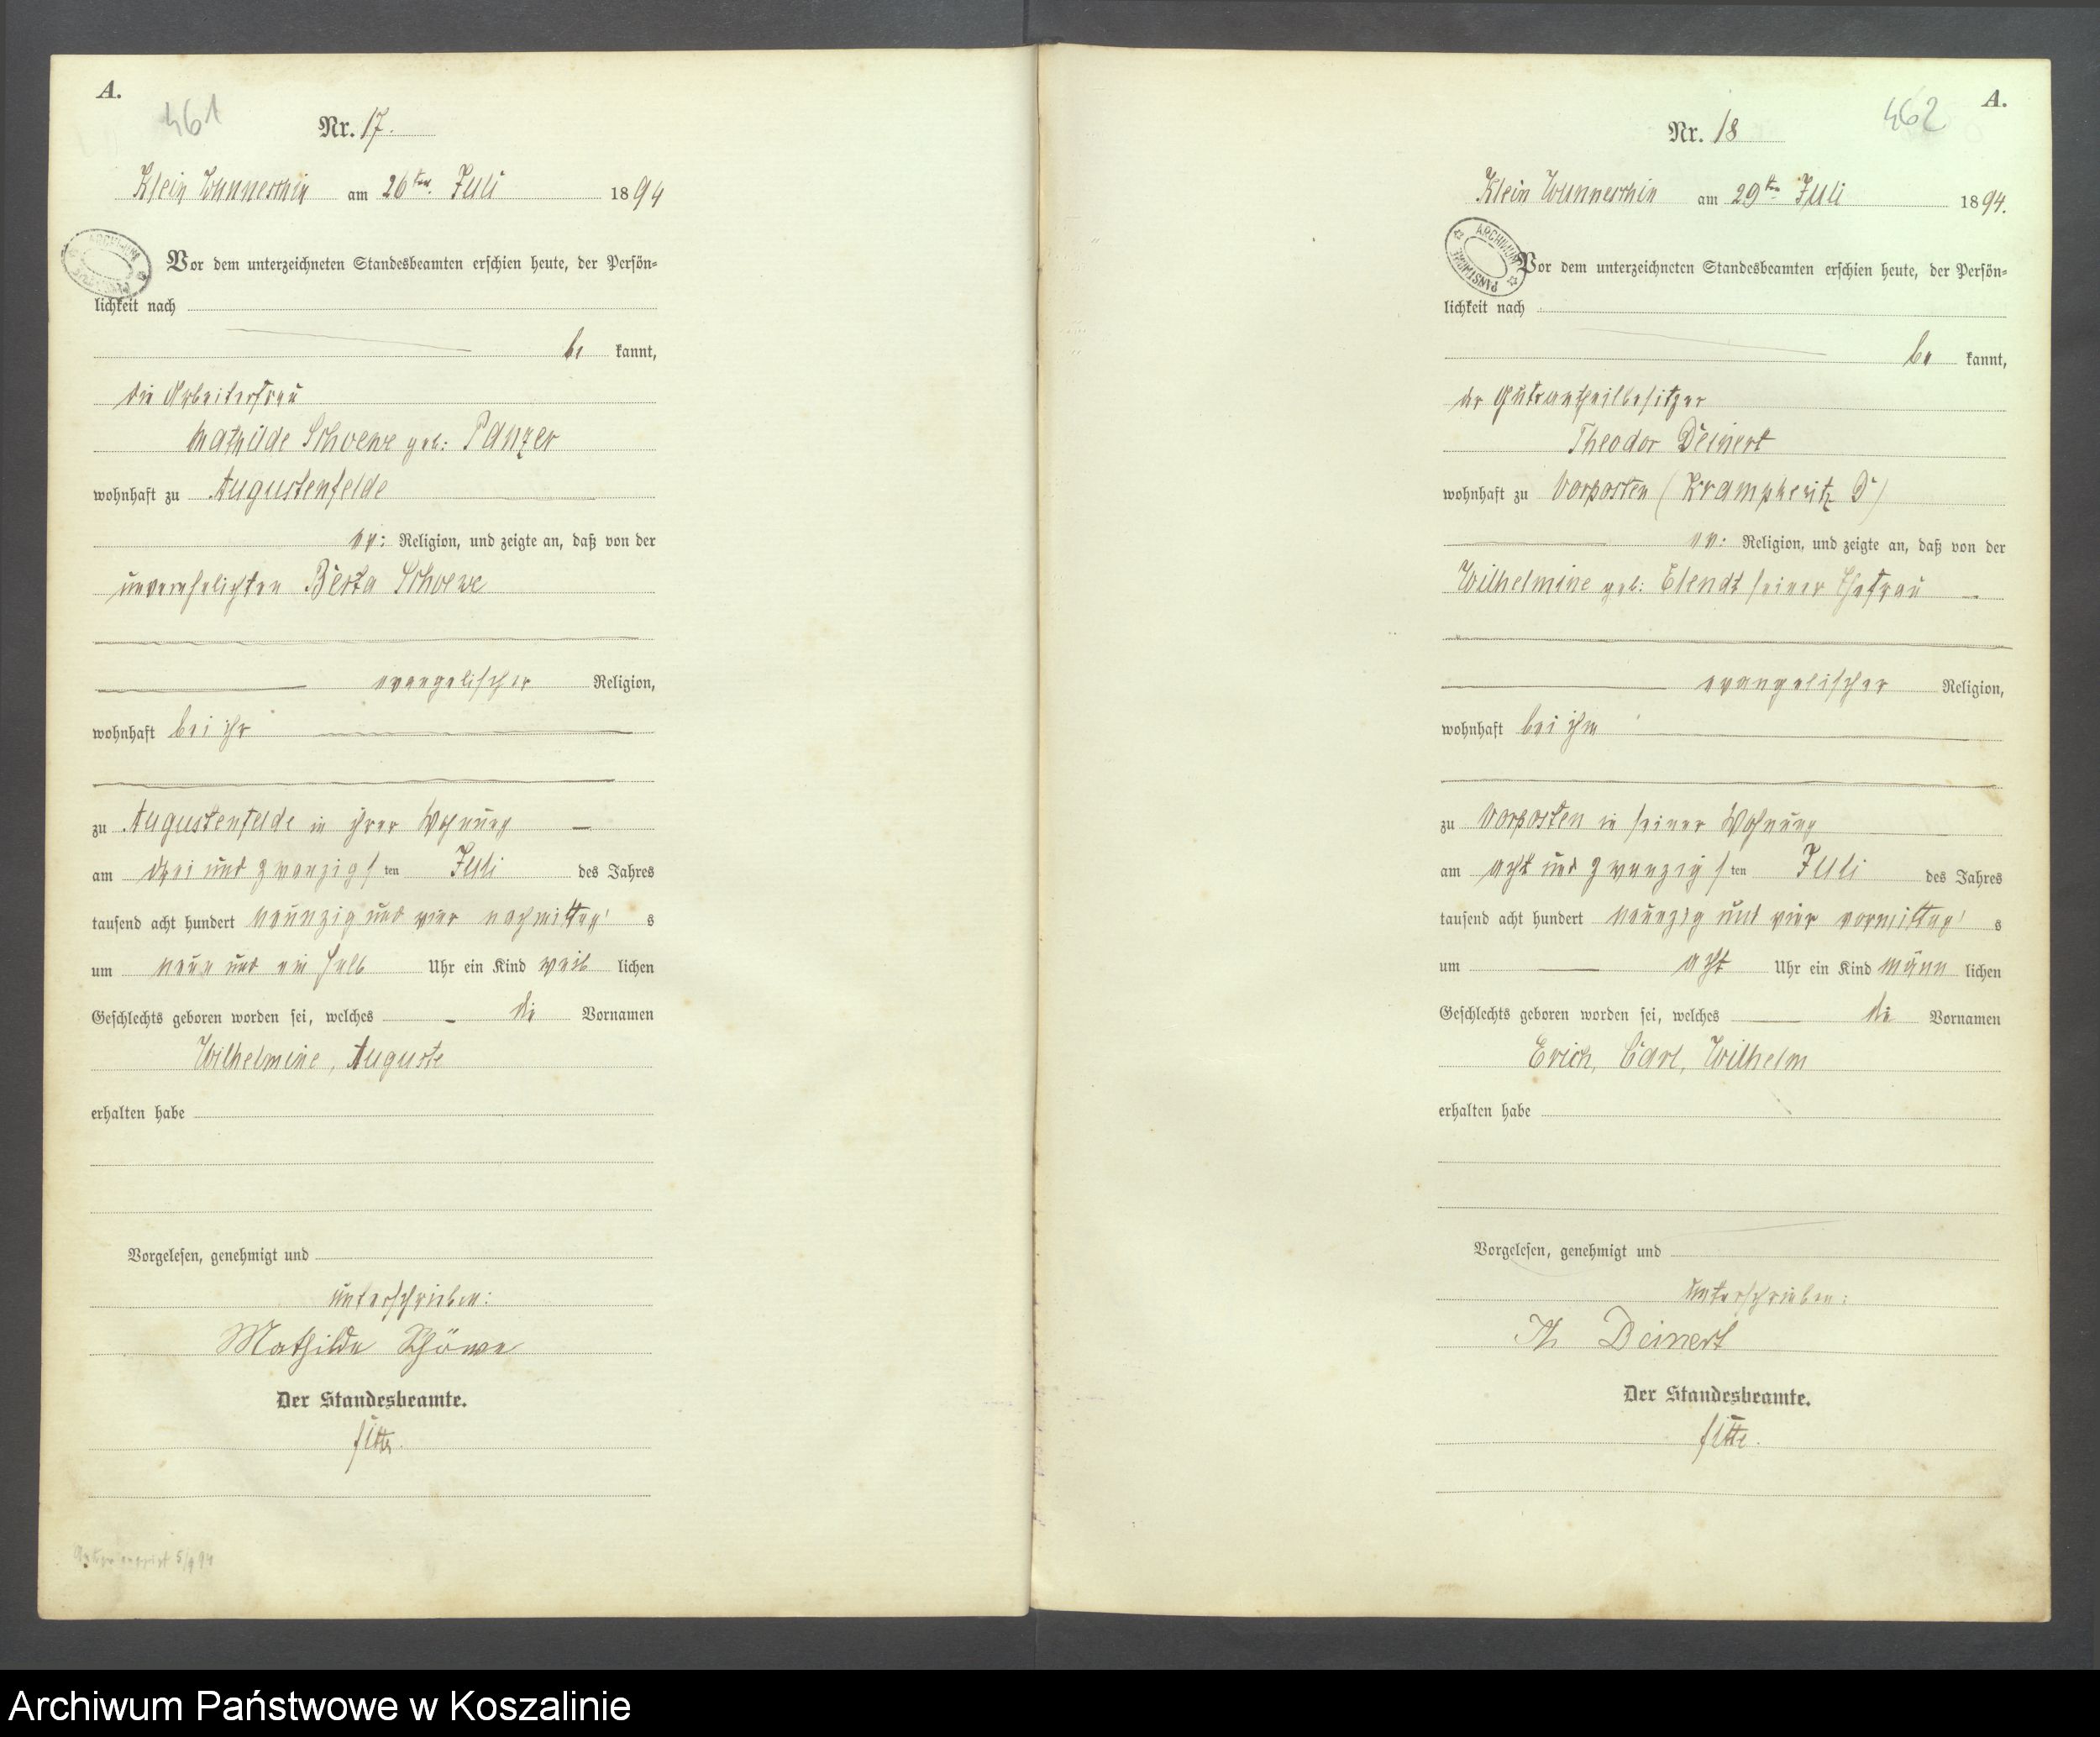 A.
461
Nr. 17.
Klein Wunneschin am 26ten Juli 1894
ARCHIWUM
Vor dem unterzeichneten Standesbeamten erschien heute, der Persön=
lichkeit nach
be kannt,
die Arbeiterfrau
Mathilde Schoewe geb: Panzer
wohnhaft zu Augustenfelde
ev: Religion, und zeigte an, daß von der
unverehelichten Berta Schoewe
evangelischer Religion,
wohnhaft bei ihr
zu Augustenfelde in ihrer Wohnung
am drei und zwanzigsten Juli des Jahres
tausend acht hundert neunzig und vier nachmittag s
um neun und ein halb Uhr ein Kind weib lichen
Geschlechts geboren worden sei, welches die Vornamen
Wilhelmine, Auguste
erhalten habe
Vorgelesen, genehmigt und
unterschrieben:
Mathilde Schöwe
Der Standesbeamte.
5/9 94
A.
462
Nr. 18
Klein Wunneschin am 29ten Juli 1894.
ARCHIWUM PAŃSTWOWE
Vor dem unterzeichneten Standesbeamten erschien heute, der Persön=
lichkeit nach
be kannt,
der Gutsantheilbesitzer
Theodor Deinert
wohnhaft zu Vorposten (Krampkewitz D)
ev: Religion, und zeigte an, daß von der
Wilhelmine geb: Elendt seiner Ehefrau
evangelischer Religion,
wohnhaft bei ihm
zu Vorposten in seiner Wohnung
am acht und zwanzigsten Juli des Jahres
tausend acht hundert neunzig und vier vormittag s
um acht Uhr ein Kind männ lichen
Geschlechts geboren worden sei, welches die Vornamen
Erich, Carl, Wilhelm
erhalten habe
Vorgelesen, genehmigt und
unterschrieben:
Th Deinert
Der Standesbeamte.
Archiwum Państwowe w Koszalinie